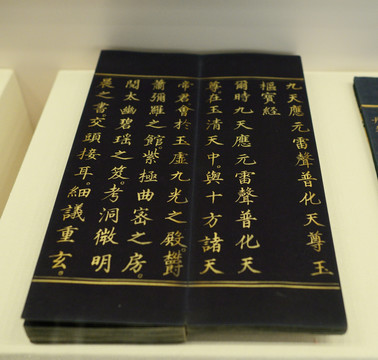 九天應元雷聲普化天尊玉
樞寶經
爾時九天應元雷聲普化天
尊在玉清天中。與十方諸天
帝君會於玉虛九光之殿。鬱
蕭彌羅之館紫極曲密之房。
閱太幽碧瑤之笈。考洞微明
晨之書。交頭接耳。細議重玄。